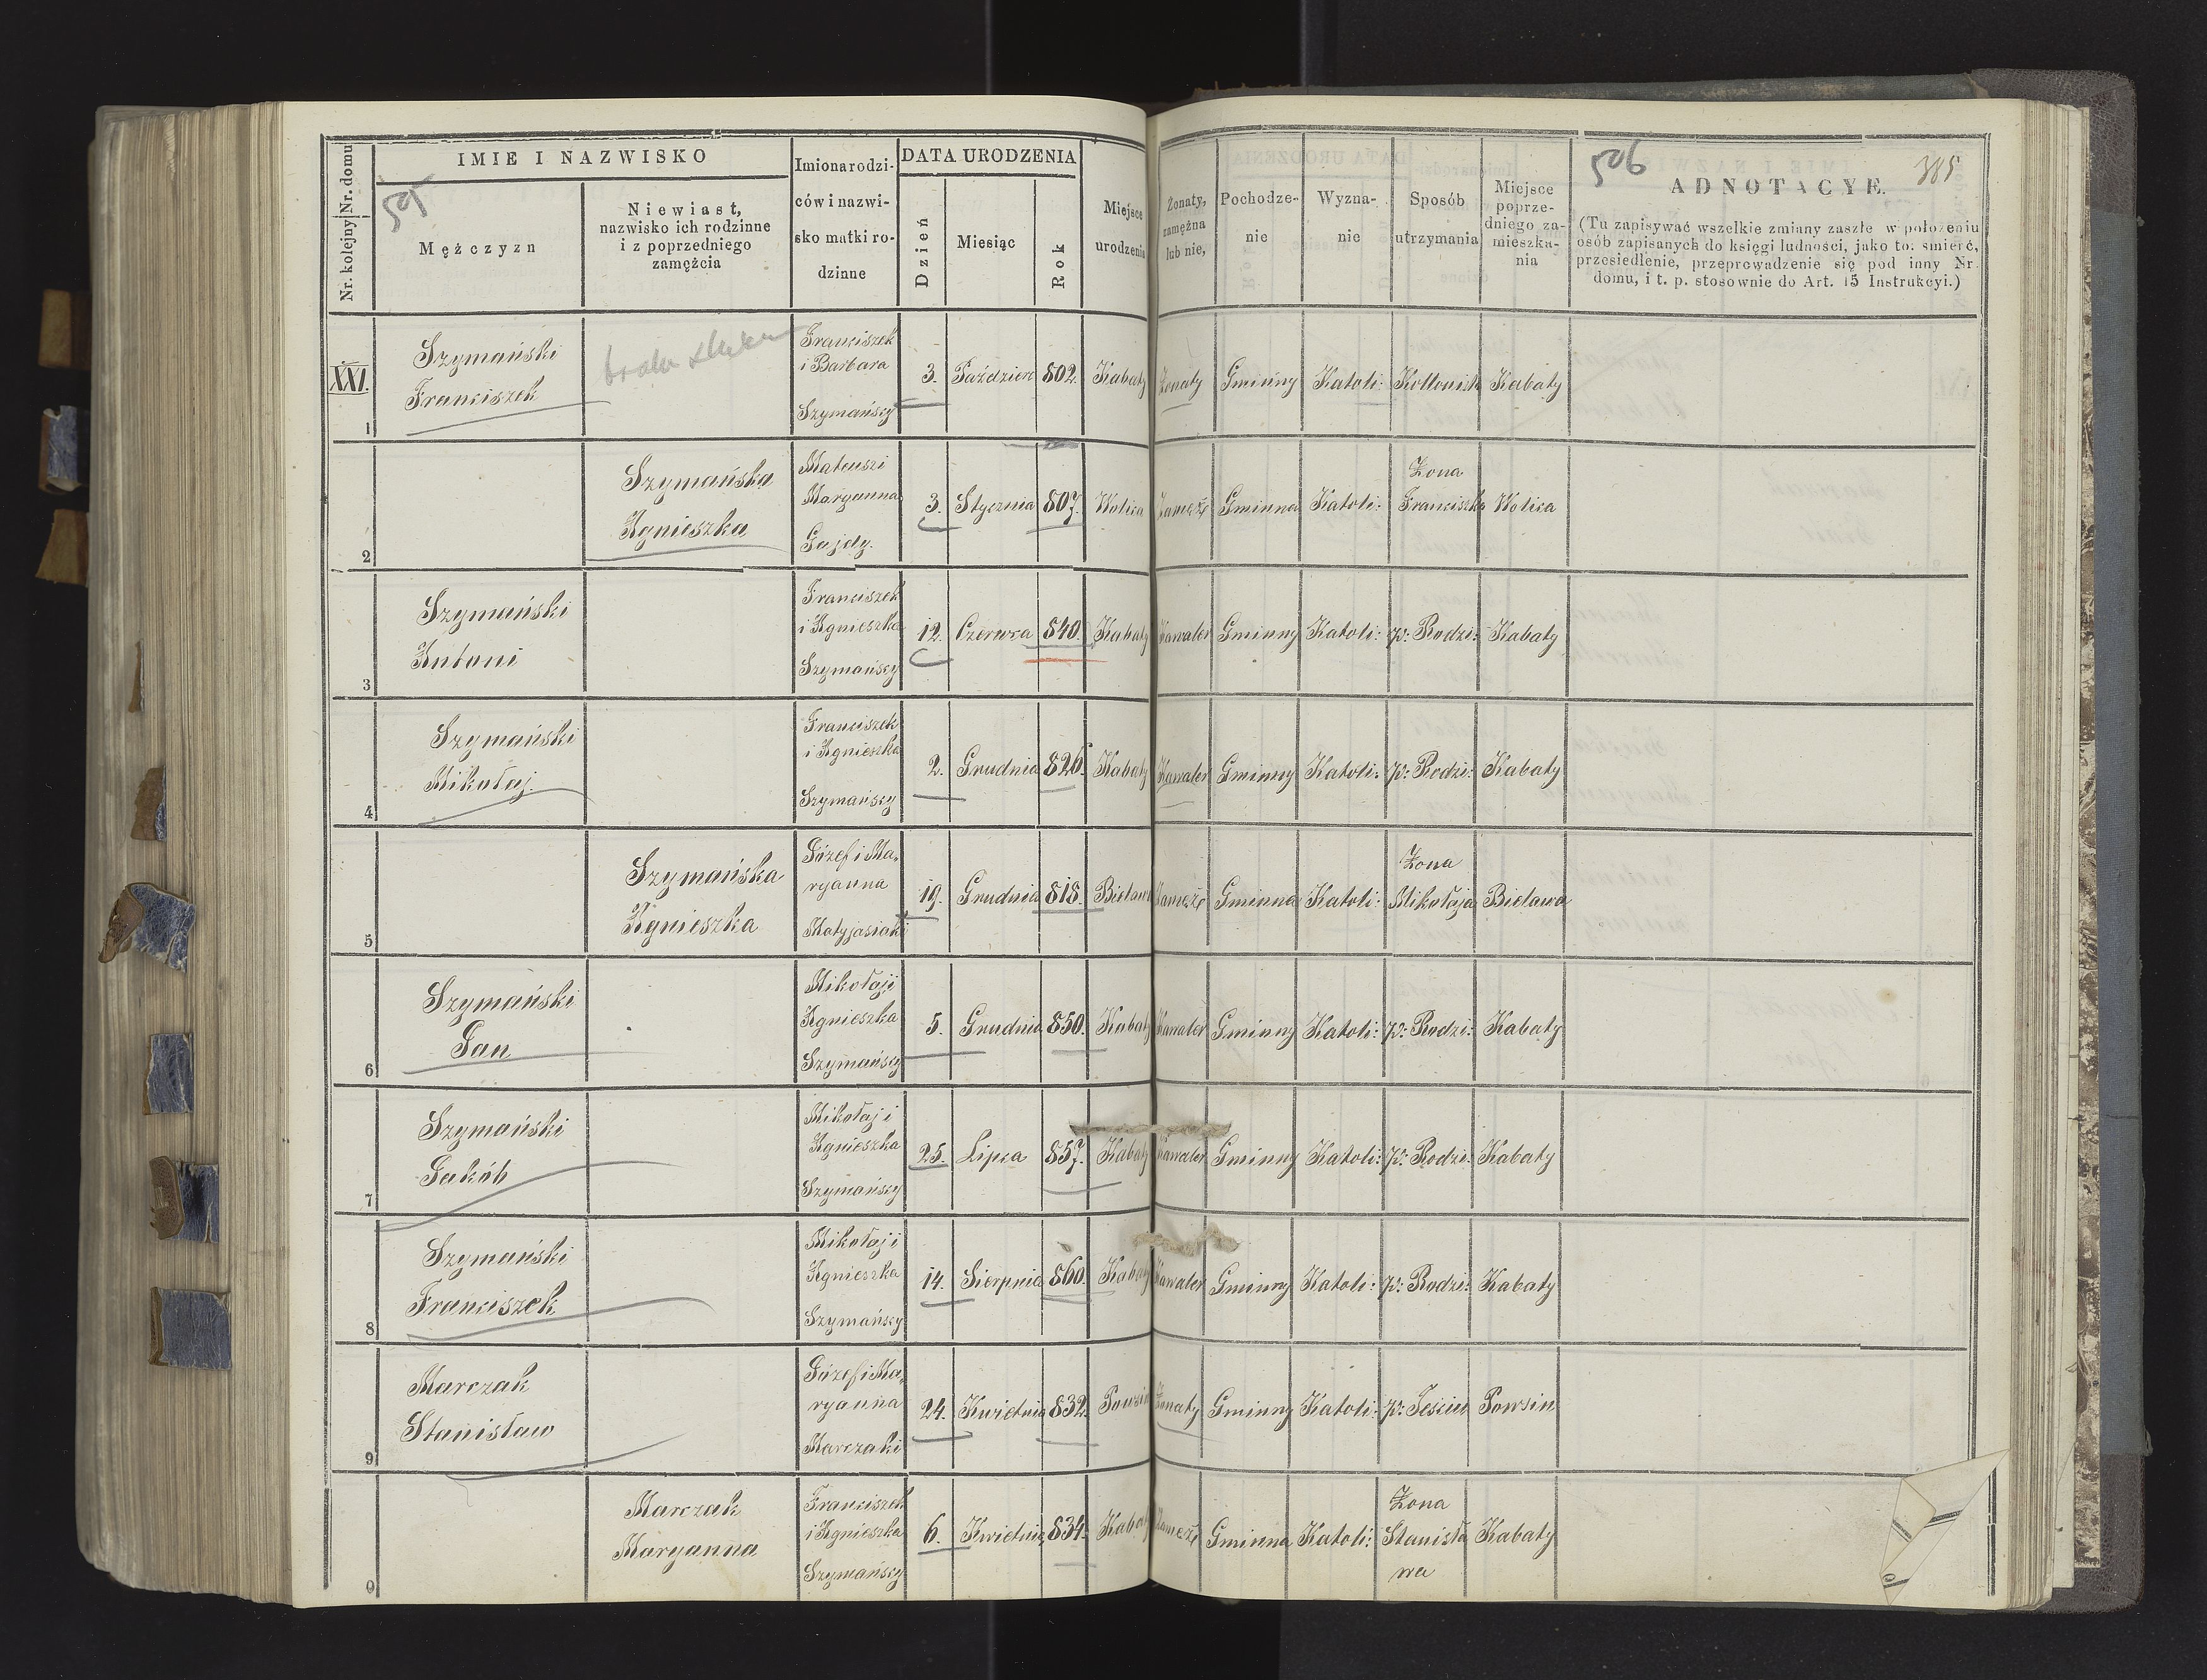 Nr. kolejny Nr. domu
IMIE I NAZWISKO
505
Mężczyzn
Niewiast,
nazwisko ich rodzinne
i z poprzedniego
zamężcia
Imiona rodzi-
ców i nazwi-
sko matki ro-
dzinne
DATA URODZENIA
Dzień
Miesiąc
Rok
Miejsce
urodzenia
Żonaty,
zamężna
lub nie,
Pochodze-
nie
Wyzna-
nie
Sposób
utrzymania
Miejsce
poprze-
dniego za-
mieszka-
nia
506
385
ADNOTACYE.
(Tu zapisywać wszelkie zmiany zaszłe w położeniu
osób zapisanych do księgi ludności, jako to: śmierć,
przesiedlenie, przeprowadzenie się pod inny Nr
domu, i t. p. stosownie do Art. 15 Instrukcyi.)
XXI.
1
Szymański
Franciszek
Franciszek
i Barbara
Szymańscy
3. Paździer 802. Kabaty Żonaty Gminny Katoli: Kollonist Kabaty
2
Szymańska
Agnieszka
Mateusz i
Maryanna
Gajdy.
3. Stycznia 807. Wolica Zamęż Gminna Katoli:
Żona
Franciszka
Wolica
3
Szymański
Antoni
Franciszek
i Agnieszka
Szymańscy
12. Czerwca 840. Kabaty Kawaler Gminny Katoli: p: Rodzi: Kabaty
4
Szymański
Mikołaj.
Franciszek
i Agnieszka
Szymańscy
2. Grudnia 826. Kabaty Kawaler Gminny Katoli: p: Rodzi: Kabaty
5
Szymańska
Agnieszka
Józef i Ma,
ryanna
Matyjasiaki
19. Grudnia 818. Bielawa Zamęż Gminna Katoli:
Żona
Mikołaja
Bielawa
6
Szymański
Jan
Mikołaj i
Agnieszka
Szymańscy
5. Grudnia 850. Kabaty Kawaler Gminny Katoli: p: Rodzi: Kabaty
7
Szymański
Jakób
Mikołaj i
Agnieszka
Szymańscy
25. Lipca 857. Kabaty Kawaler Gminny Katoli: p: Rodzi: Kabaty
8
Szymański
Franciszek
Mikołaj i
Agnieszka
Szymańscy
14. Sierpnia 860. Kabaty Kawaler Gminny Katoli: p: Rodzi: Kabaty
9
Marczak
Stanisław
Józef i Ma,
ryanna
Marczaki
24. Kwietnia 832. Powsin Żonaty Gminny Katoli: p: Teściu Powsin
0
Marczak
Maryanna
Franciszek
i Agnieszka
Szymańscy
6. Kwietnia 834. Kabaty Zamęż Gminna Katoli:
Żona
Stanisła
wa
Kabaty